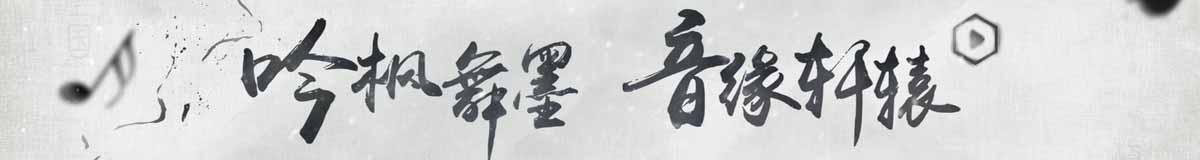 吟枫舞墨 音缘轩辕